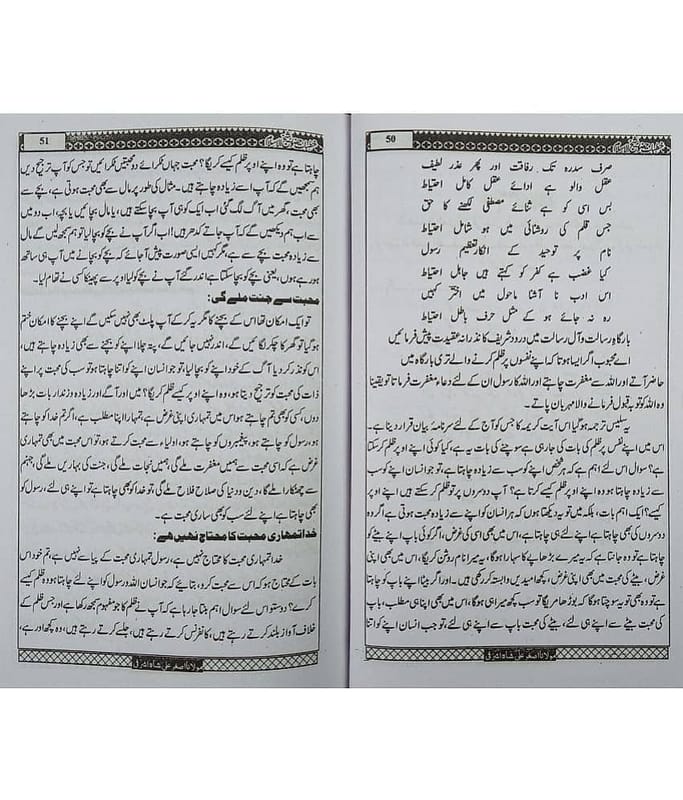 50
صرف سدرہ تک رفاقت اور پھر عذر لطیف
عقل والو ہے ادائے عقل کامل احتیاط
بس اسی کو ہے ثنائے مصطفیٰ لکھنے کا حق
جس قلم کی روشنائی میں ہو شامل احتیاط
نام پر توحید کے انکار تعظیم رسول
کیا غضب ہے کفر کو کہتے ہیں جاہل احتیاط
اس ادب نا آشنا ماحول میں اختر کہیں
رہ نہ جائے ہو کے مثل حرف باطل احتیاط
بارگاہ رسالت و آل رسالت میں درود شریف کا نذرانہ عقیدت پیش فرمائیں
اے محبوب اگر ایسا ہوتا کہ اپنے نفسوں پر ظلم کرنے والے تری بارگاہ میں
حاضر آتے اور اللہ سے مغفرت چاہتے اور اللہ کا رسول ان کے لئے دعاء مغفرت فرماتا تو یقینا
وہ اللہ کو توبہ قبول فرمانے والا مہربان پاتے۔
یہ سلیس ترجمہ ہو گیا اس آیت کریمہ کا جس کو آج کے لئے سرنامۂ بیان قرار دینا ہے۔
اس میں اپنے نفس پر ظلم کی بات کی جارہی ہے سوچنے کی بات یہ ہے، کیا کوئی اپنے اوپر ظلم کر سکتا
ہے؟ سوال اس لئے اہم ہے کہ ہر شخص اپنے کو سب سے زیادہ چاہتا ہے، تو جو انسان اپنے کو سب
سے زیادہ چاہتا ہو وہ اپنے اوپر ظلم کیسے کرتا ہے؟ آپ دوسروں پر تو ظلم کر سکتے ہیں اپنے اوپر
کیسے؟ ایک اہم بات، بلکہ میں تو یہ دیکھتا ہوں کہ ہر انسان کو اپنے سے زیادہ محبت ہوتی ہے اگر وہ
دوسروں کی بھی چاہتا ہے اپنے لئے ہی چاہتا ہے، اس میں بھی اسی کی غرض، اگر کوئی باپ اپنے بیٹے کو
چاہتا ہے تو وہ جانتا ہے کہ یہ میرے بڑھاپے کا سہارا ہوگا، یہ میرا نام روشن کریگا، اس میں بھی اپنی
غرض، بیٹے کی محبت میں بھی اپنی غرض، کچھ امیدیں وابستہ کر رکھی ہیں۔ اور اگر بیٹا اپنے باپ کو چاہتا
ہے تو وہ بھی تو یہ سوچتا ہوگا کہ بوڑھا مریگا تو سب کچھ میرا ہی ہوگا، اس میں بھی اپنا ہی مطلب، باپ
کی محبت بیٹے سے اپنے ہی لئے، بیٹے کی محبت باپ سے اپنے ہی لئے، تو جب انسان اپنے کو اتنا
مولانا اصغر علی شاہ اشرفی
51
چاہتا ہے تو وہ اپنے اوپر ظلم کیسے کریگا؟ محبت جہاں ٹکرائے دو محبتیں ٹکرائیں تو جس کو آپ ترجیح دیں
ہم سمجھیں گے کہ آپ اسے زیادہ چاہتے ہیں۔ مثال کی طور پر مال سے بھی محبت ہوتی ہے، بچے سے
بھی محبت، گھر میں آگ لگ گئی اب ایک کو ہی آپ بچا سکتے ہیں، یا مال بچائیں یا بچہ، اب دو میں
سے اب ہم دیکھیں گے کہ آپ جاتے کدھر ہیں! اب اگر آپ نے بچے کو بچا لیا تو ہم سمجھ لیں گے مال
سے زیادہ محبت بچے سے ہے، مگر کہیں ایسی صورت پیش آجائے کہ بچے کو بچانے میں آپ ہی ساتھ
ہو رہے ہوں، یعنی بچے کو بچا سکتا ہے اندر گئے آپ نے بچے کو لیا اوپر سے پھینکا کسی نے تھام لیا۔
محبت سے جنت ملے گی:
تو ایک امکان تھا اس کے بچنے کا مگر یہ کر کے آپ پلٹ بھی نہیں سکیں گے اپنے بچنے کا امکان ختم
ہو گیا تو گھر کا چکر لگائیں گے، اندر نہیں جائیں گے، پتہ چلا اپنے کو بچے سے بھی زیادہ چاہتے ہیں،
اس کو نذر کر دیا آگ کے خود اپنے کو بچا لیا، تو جو انسان اپنے کو اتنا چاہتا ہو تو سب پر اپنی
ذات کی محبت کو ترجیح دیتا ہو، وہ اپنے اوپر ظلم کیسے کریگا؟ میں اور آگے اور زیادہ وزندار بات بڑھا
دوں، کسی کو بھی تم چاہتے ہو اس میں تمہاری اپنی غرض ہے، تمہارا اپنا مطلب ہے، اگر تم خدا کو چاہتے
ہو، رسول کو چاہتے ہو، پیغمبروں کو چاہتے ہو، اولیاء سے محبت کرتے ہو، تو اس میں بھی تمہاری
غرض ہے کہ اسی محبت سے ہمیں مغفرت ملے گی، ہمیں نجات ملے گی، جنت کی بہاریں ملے گی، جہنم
سے چھٹکارا ملے گا، دین و دنیا کی صلاح فلاح ملے گی، تو خدا کو بھی چاہتا ہے تو اپنے ہی لئے، رسول کو
بھی چاہتا ہے اپنے لئے سب کو بھی ساری محبت ہے۔
خدا تمہاری محبت کا محتاج نہیں ہے:
خدا تمہاری محبت کا محتاج نہیں ہے، رسول تمہاری محبت کے پیاسے نہیں ہے، تم خود اس
بات کے محتاج ہو کہ اس سے محبت کرو، بتائیے کہ جو انسان اللہ و رسول کو اپنے لئے چاہتا ہو وہ ظلم کیسے
کرے؟ دوستو اس لئے سوال اہم بنتا جا رہا ہے کہ آپ نے ظلم کا جو مفہوم سمجھ رکھا ہے اور جس ظلم کے
خلاف آواز بلند کرتے رہتے ہیں، کانفرنس کرتے رہتے ہیں، جلسے کرتے رہتے ہیں، وہ کچھ اور ہے،
مولانا اصغر علی شاہ اشرفی